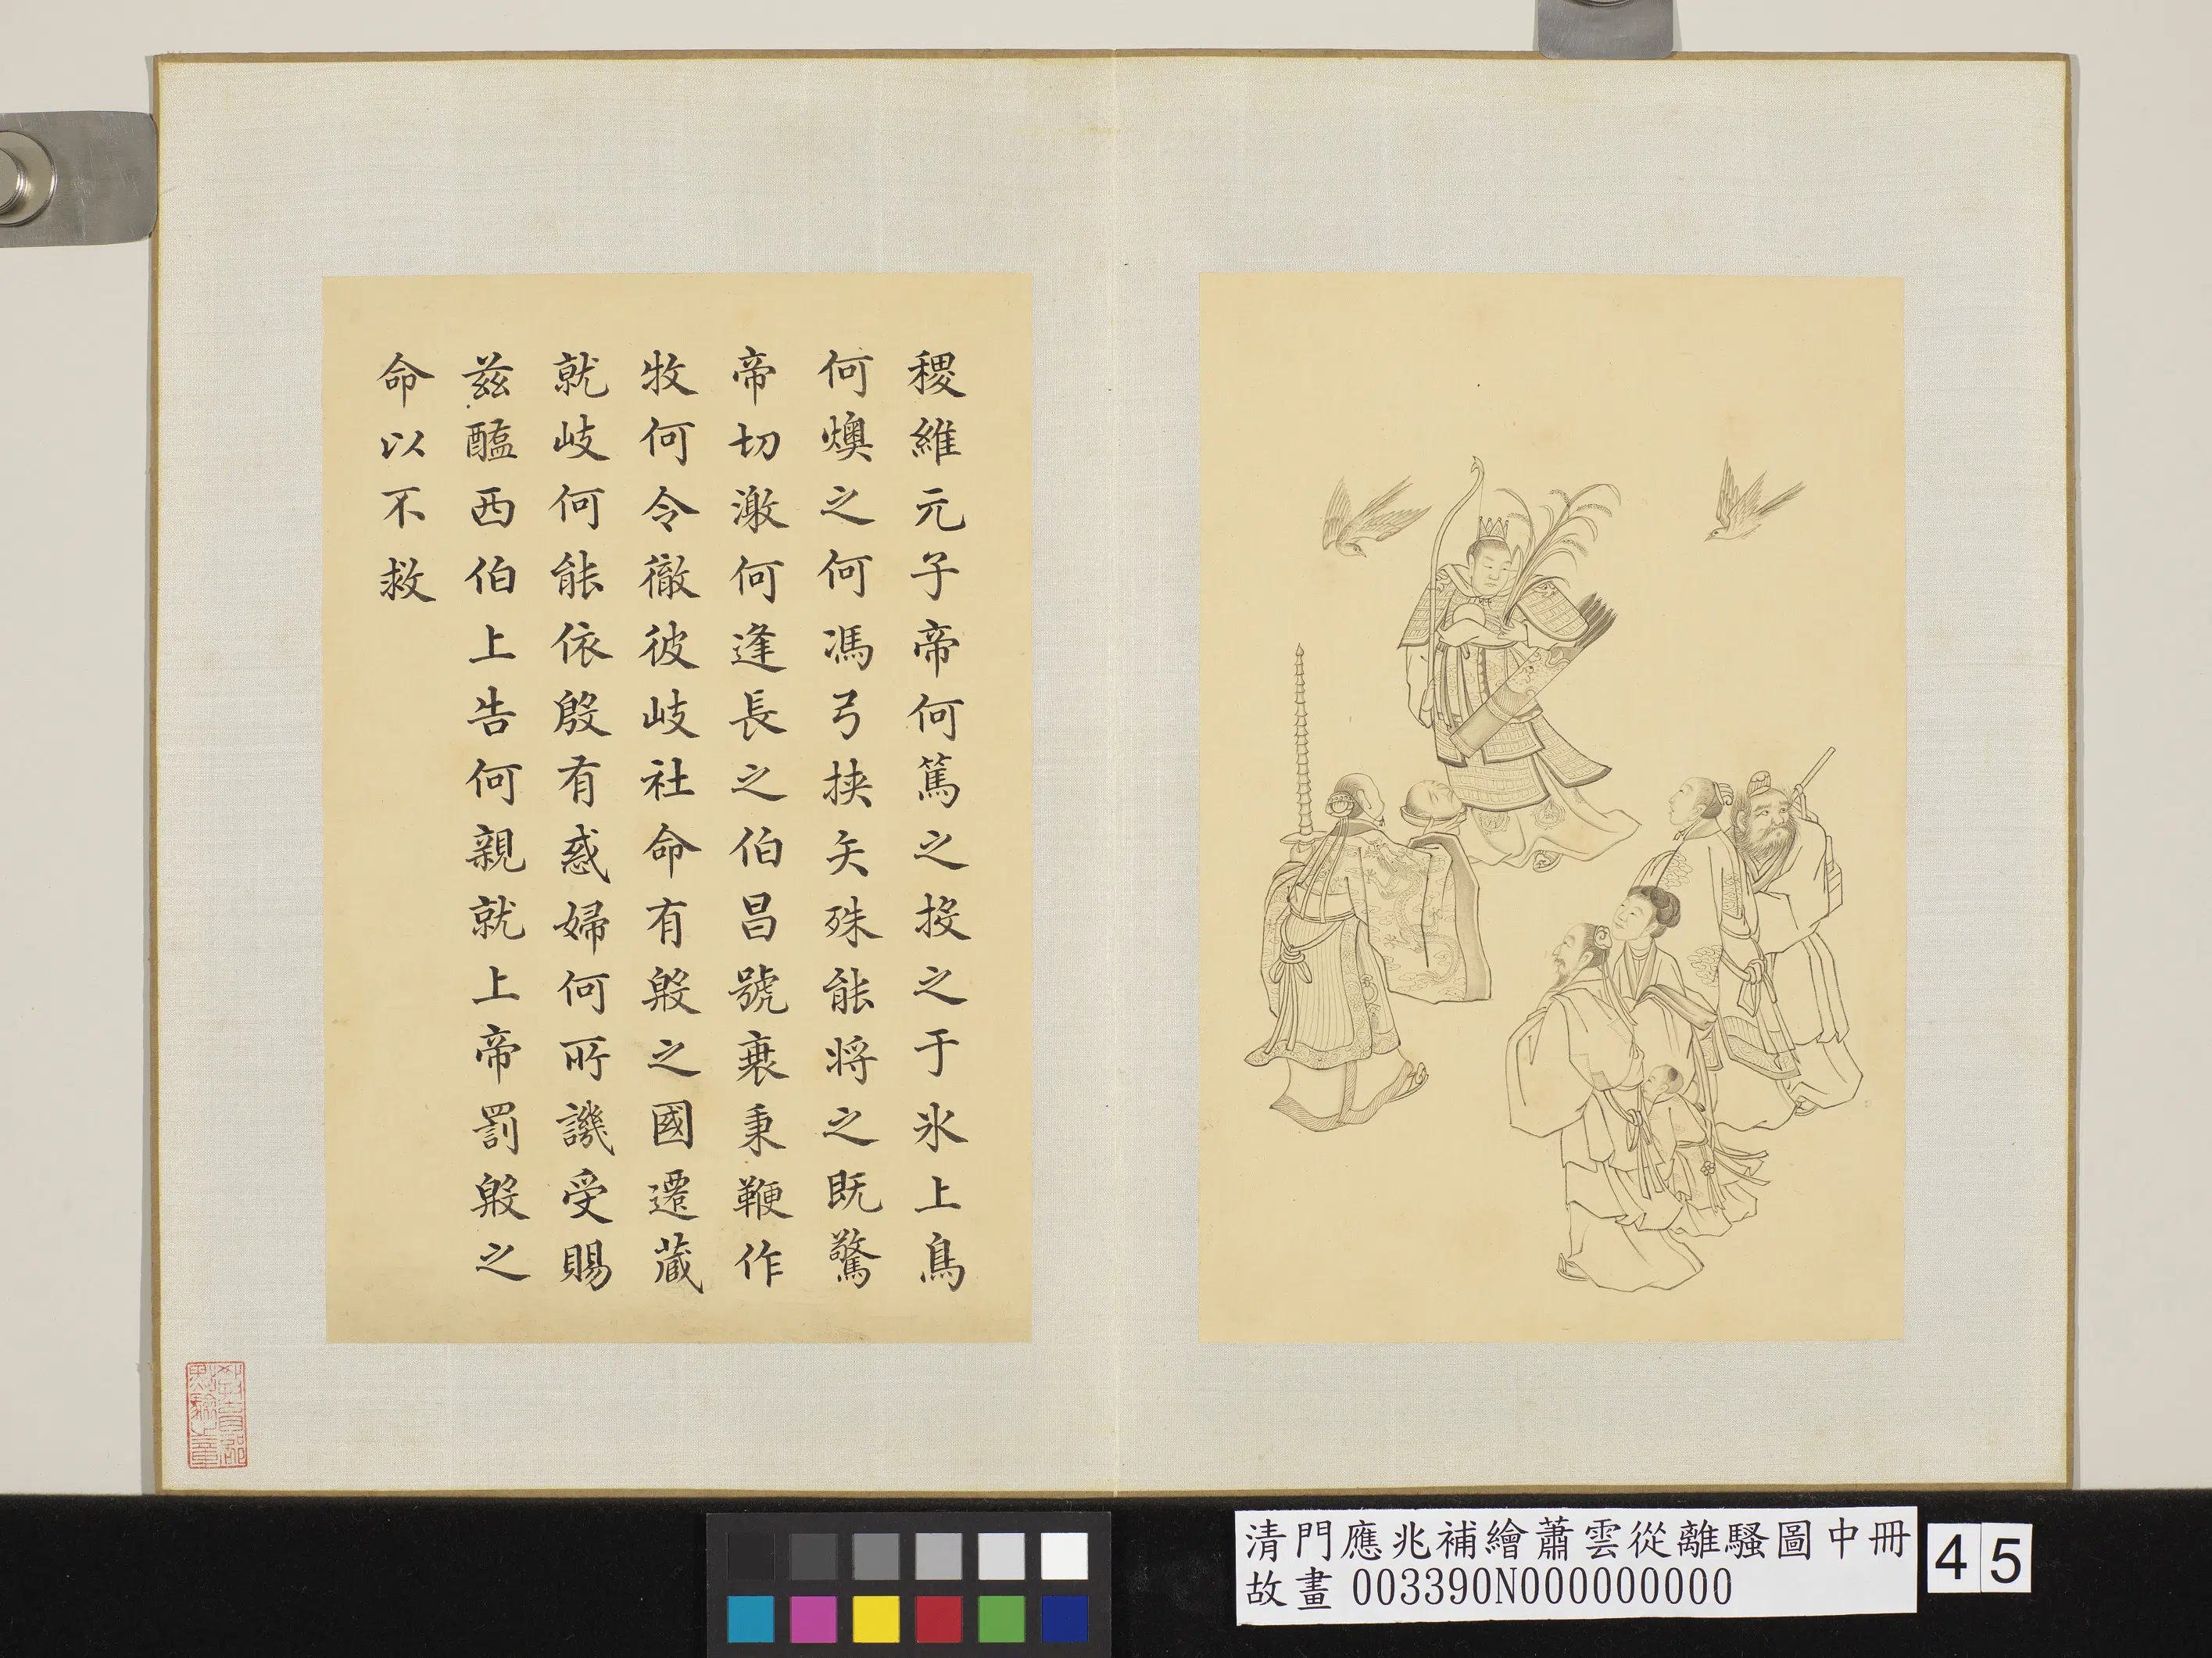 稷維元子帝何篤之投之于氷上鳥
何燠之何馮弓挟矢殊能将之既驚
帝切激何逢長之伯昌號衰秉鞭作
牧何令徹彼岐社命有殷之國遷藏
就岐何能依殷有惑婦何所譏受賜
兹醢西伯上告何親就上帝罰殷之
命以不救
教育部
點驗之章
清門應兆補繪蕭雲從離騷圖中冊
故畫 003390N000000000
45